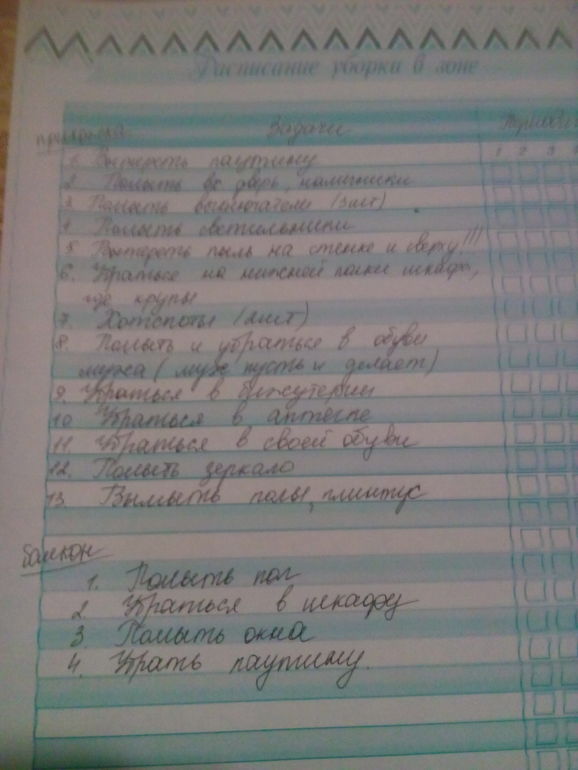 Расписание уборки в зоне
прихожая Задачи Период
1 2 3
1. Вытереть паутину
2. Помыть вх дверь, наличники
3. Помыть выключатели (3шт)
4. Помыть светильники
5. Вытереть пыль на стенке и сверху!!!
6. Убраться на нижней полке шкафа,
где крупы
7. Хотспоты (2шт)
8. Помыть и убраться в обуви
мужа (муж пусть и делает)
9. Убраться в бижутерии
10 Убраться в аптечке
11. Убраться в своей обуви
12. Помыть зеркало
13. Вымыть полы, плинтус
балкон
1. Помыть пол
2. Убраться в шкафу
3. Помыть окна
4. Убрать паутину.